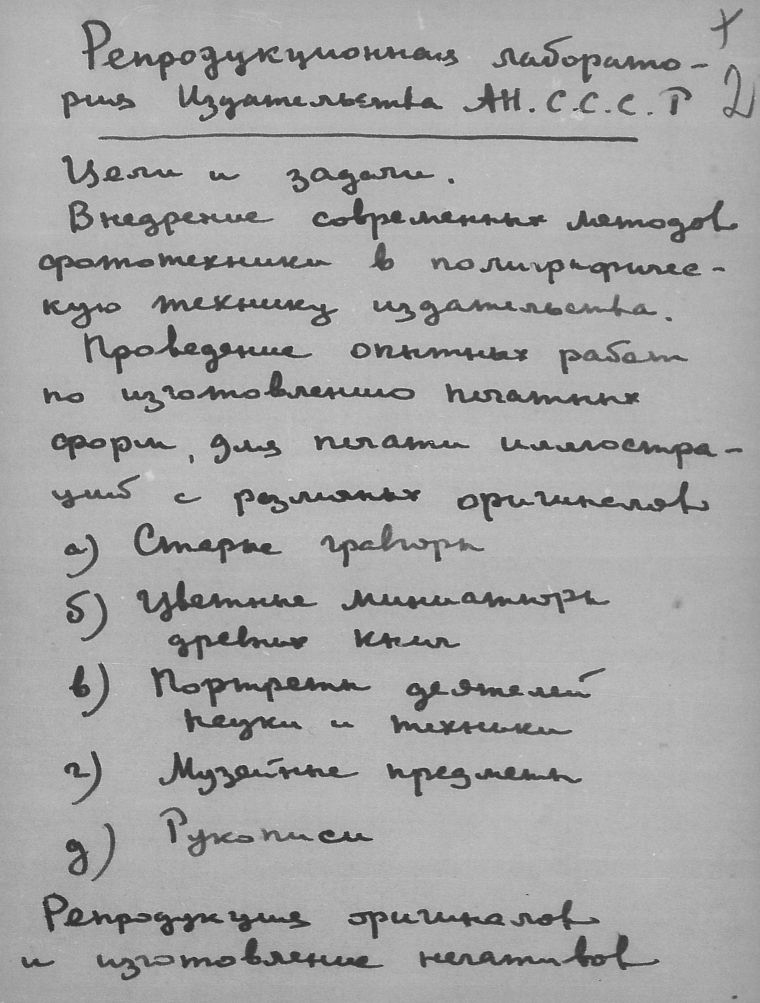 +
Репродукционная лаборато-
рия Издательства АН. С. С. С. Р
2
Цели и задачи.
Внедрение современных методов
фототехники в полиграфичес-
кую технику издательства.
Проведение опытных работ
по изготовлению печатных
форм, для печати иллюстра-
ций с различных оригиналов
а) Старые гравюры
б) Цветные миниатюры
древних книг
в) Портреты деятелей
науки и техники
г) Музейные предметы
д) Рукописи
Репродукция оригиналов
и изготовление негативов